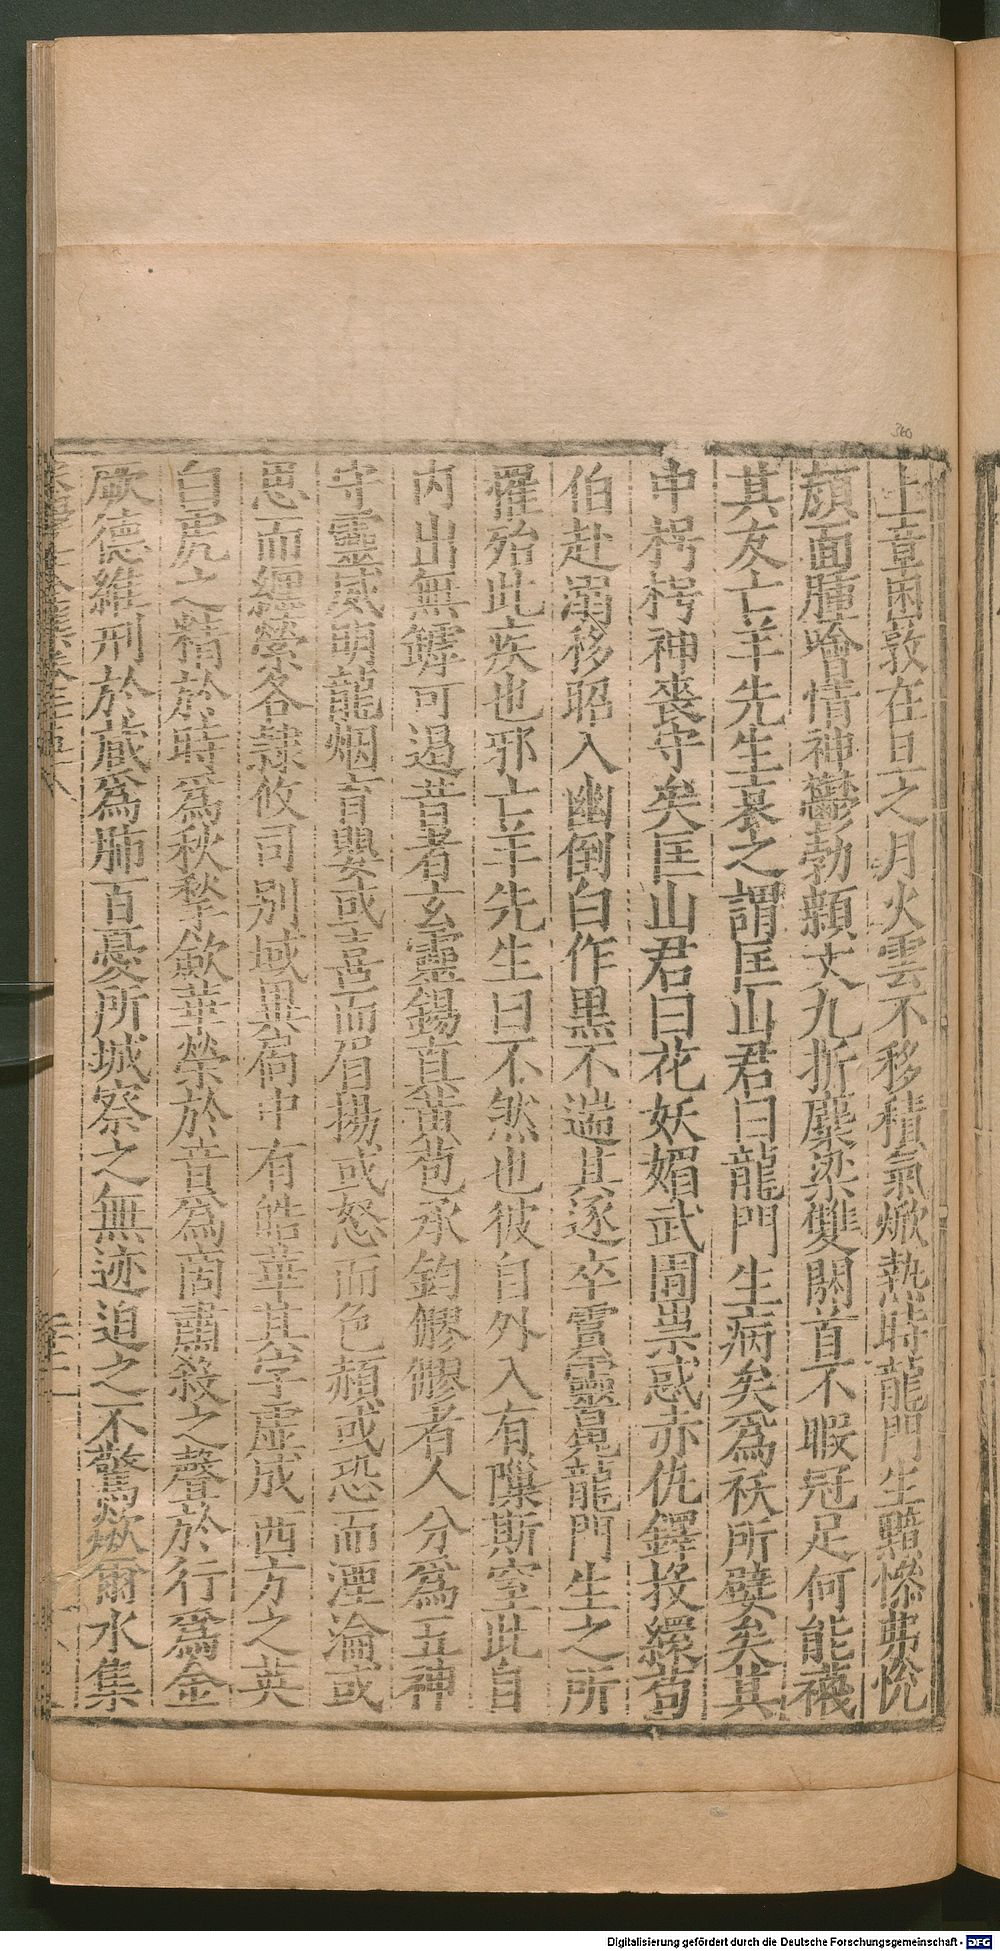 上章困敦在旦之月火雲不移積氣焮熱時龍門生黯慘弗悅
顔面腫噲情神鬱勃顙丈九折麋梁雙闕首不暇冠足何能襪
其友亡羊先生哀之謂匡山君曰龍門生病矣爲祅所嬖矣其
中樗樗神喪守矣匡山君曰花妖媚武固祟惑赤仇鐸投繯苟
伯赴溺移昭入幽倒白作黑不遄其逐卒霣靈鬼龍門生之所
罹殆此疾也邪亡羊先生曰不然也彼自外入有隟斯窒此自
内出無罅可遏昔者玄靈錫真黄苞承鈞膠膠者人分爲五神
守靈威明龍烟育嬰或喜而眉揚或怒而色頳或恐而湮淪或
思而纏縈各隷攸司别域異扃中有皓華其字虛成西方之英
白虎之精於時爲秋揫歛華榮於音爲商肅殺之聲於行爲金
歐德維刑於蔵爲肺百憂所城察之無迹迫之不驚欻爾水集
360
Digitalisierung gefördert durch die Deutsche Forschungsgemeinschaft - DFG